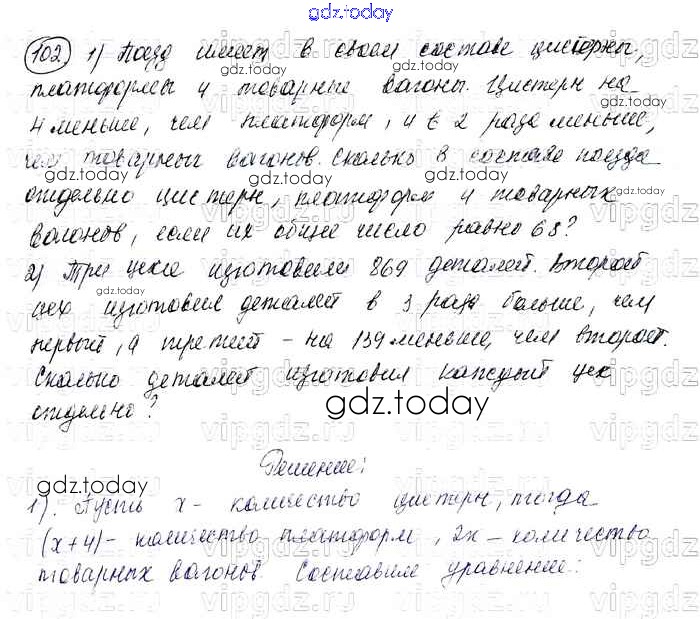 gdz.today
102. 1) Поезд имеет в своём составе цистерны,
платформы и товарные вагоны. Цистерн на
4 меньше, чем платформ, и в 2 раза меньше,
чем товарных вагонов. Сколько в составе поезда
отдельно цистерн, платформ и товарных
вагонов, если их общее число равно 68?
2) Три цеха изготовили 869 деталей. Второй
цех изготовил деталей в 3 раза больше, чем
первый, а третий - на 139 меньше, чем второй.
Сколько деталей изготовил каждый цех
отдельно?
gdz.today
Решение:
1). Пусть x - количество цистерн, тогда
(x+4) - количество платформ, 2x - количество
товарных вагонов. Составим уравнение: